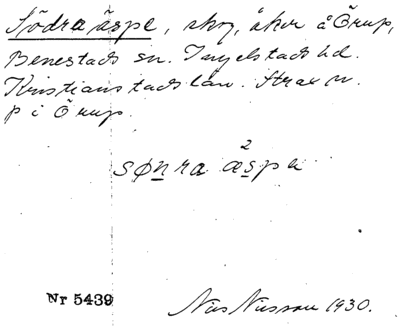 Södra äspe, skog, åker å Örup,
Benestads sn. Ingelstads hd.
Kristianstads län. Strax n.
p i Örup.
sønra æ²spe
Nr 5439
Nils Nilsson 1930.